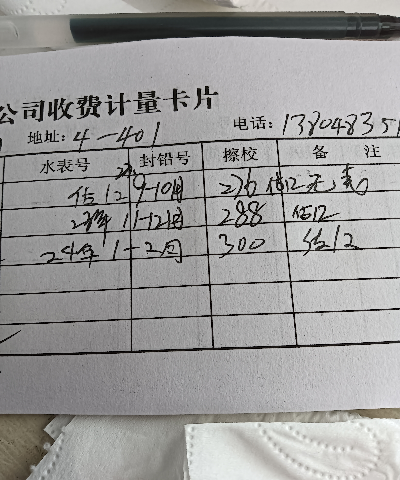 公司收费计量卡片
地址: 4-401 电话: 138048351
水表号 封铅号 擦校 备注
估12 9-10月 276 估12
23年 11-12月 288 估12
24年 1-2月 300 估12